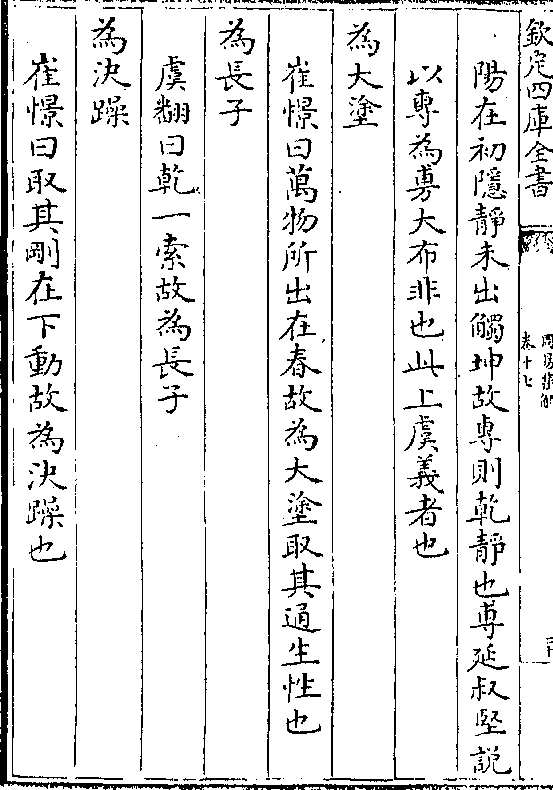 欽定四庫全書
周易集解
卷十七
陽在初隱靜未出觸坤故專則乾靜也專延叔堅說
以專為旉大布非也此上虞義者也
為大塗
崔憬曰萬物所出在春故為大塗取其通生性也
為長子
虞翻曰乾一索故為長子
為決躁
崔憬曰取其剛在下動故為決躁也